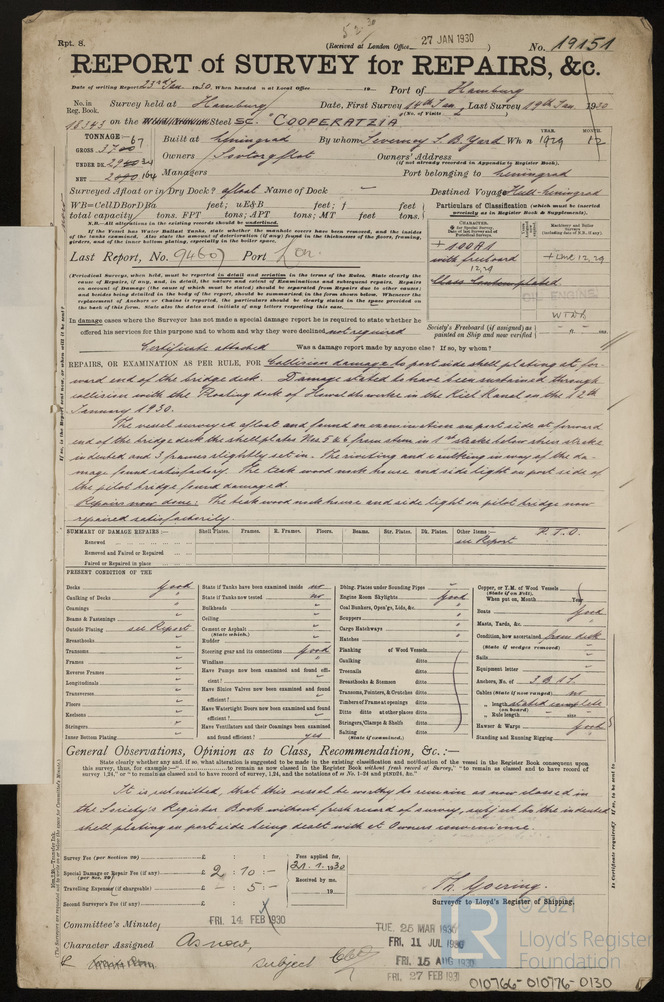 Rpt. 8.
(Received at London Office 27 JAN 1930)
No. 19151
REPORT of SURVEY for REPAIRS, &c.
Date of writing Report 23rd Jan. 1930. When handed in at Local Office 19 Port of Hamburg
No. in Reg. Book. Survey held at Hamburg Date, First Survey 14th Jan. Last Survey 19th Jan. 1930
(No. of Visits 2)
18143 on the Steel SC. "COOPERATZIA"
TONNAGE:—
GROSS 3700 67
UNDER DK 2940 24
NET 164
Built at Leningrad By whom Severney S. B. Yard When 1929 YEAR. MONTH. 12
Owners Sovtorgflot Owners' Address
(if not already recorded in Appendix to Register Book).
Managers Port belonging to Leningrad
Surveyed Afloat or in Dry Dock? afloat Name of Dock — Destined Voyage Hull-Leningrad
WB=CellDBorDBa feet; uE&B feet; f feet;
total capacity tons. FPT tons; APT tons; MT feet tons.
N.B.—All alterations in the existing records should be underlined.
If the Vessel has Water Ballast Tanks, state whether the manhole covers have been removed, and the insides of the tanks examined. Also state the amount of deterioration (if any) found in the thicknesses of the floors, framing, girders, and of the inner bottom plating, especially in the boiler space.
Last Report, No. 94607 Port Lon.
Particulars of Classification (which must be inserted precisely as in Register Book & Supplements).
+100A1
with freeboard
12,29
Class Contemplated
+LMC 12,29
OIL ENGINE
Society's Freeboard (if assigned) as painted on Ship and now verified
(Periodical Surveys, when held, must be reported in detail and seriatim in the terms of the Rules. State clearly the cause of Repairs, if any, and, in detail, the nature and extent of Examinations and subsequent repairs. Repairs on account of Damage (the cause of which must be stated) should be separated from Repairs due to other causes and besides being detailed in the body of the report, should be summarized in the form shown below. Whenever the replacement of Anchors or Chains is reported, the particulars should be clearly stated in the space provided on the back of this form. State also the dates and initials of any letters respecting this case.
In damage cases where the Surveyor has not made a special damage report he is required to state whether he
offered his services for this purpose and to whom and why they were declined not required
Certificate attached Was a damage report made by anyone else? If so, by whom?
REPAIRS, OR EXAMINATION AS PER RULE, FOR Collision damage to port side shell plating at for-
ward end of the bridge deck. Damage stated to have been sustained through
collision with the Floating dock of Howaldtswerke in the Kiel Kanal on the 12th
January 1930.
The vessel surveyed afloat and found on examination on port side at forward
end of the bridge deck the shell plates Nos 5 & 6 from stem in 1st strake below sheer strake
indented and 3 frames slightly set in. The riveting and caulking in way of the da-
mage found satisfactory. The teak wood nockhouse and side light on port side of
the pilot bridge found damaged.
Repairs now done: The teak wood nockhouse and side light on pilot bridge now
repaired satisfactorily.
P. T. O.
SUMMARY OF DAMAGE REPAIRS:— Shell Plates. Frames. R. Frames. Floors. Beams. Str. Plates. Dk. Plates. Other Items:—
Renewed
see Report
Removed and Faired or Repaired
Faired or Repaired in place
PRESENT CONDITION OF THE
Decks good
Caulking of Decks "
Coamings "
Beams & Fastenings
Outside Plating see Report
Breasthooks
Transoms
Frames
Reverse Frames
Longitudinals
Transverses
Floors
Keelsons
Stringers
Inner Bottom Plating
State if Tanks have been examined inside no
State if Tanks now tested no
Bulkheads
Ceiling
Cement or Asphalt
(State which.)
Rudder
Steering gear and its connections good
Windlass
Have Pumps now been examined and found efficient?
Have Sluice Valves now been examined and found efficient?
Have Watertight Doors now been examined and found efficient?
Have Ventilators and their Coamings been examined and found efficient? yes
Dblng. Plates under Sounding Pipes
Engine Room Skylights good
Coal Bunkers, Open'gs, Lids, &c.
Scuppers
Cargo Hatchways
Hatches
Planking of Wood Vessels
Caulking ditto
Treenails ditto
Breasthooks & Stemson ditto
Transoms, Pointers, & Crutches ditto
Timbers of Frame at openings ditto
Ditto ditto at other places ditto
Stringers, Clamps & Shelfs ditto
Salting ditto
(State if examined.)
Copper, or Y.M. of Wood Vessels
(State if on Felt).
When put on, Month Year
Boats good
Masts, Yards, &c. "
Condition, how ascertained from deck
(State if wedges removed)
Sails
Equipment letter
Anchors, No. of 3.B.1.S.
Cables (State if now ranged) no
" length (on board) stated complete
" Rule length
Hawser & Warps good
Standing and Running Rigging
General Observations, Opinion as to Class, Recommendation, &c.:—
State clearly whether any and, if so, what alteration is suggested to be made in the existing classification and notification of the vessel in the Register Book consequent upon
It is submitted, that this vessel be worthy to remain as now classed in
the Society's Register Book without fresh record of survey, subject to the indented
shell plating on port side being dealt with at Owners convenience.
Survey Fee (per Section 20) £
Special Damage or Repair Fee (if any) (per Sec. 20) £ 2 : 10 : -
Travelling Expenses (if chargeable) £ - : 5 : -
Second Surveyor's Fee (if any) £
Fees applied for, 21.1.1930
Received by me, 19
Th. Goering.
Surveyor to Lloyd's Register of Shipping.
Committee's Minute FRI. 14 FEB 1930
TUE. 25 MAR 1930
FRI. 11 JUL 1930
FRI. 15 AUG 1930
FRI. 27 FEB 1931
Character Assigned As now,
subject
© 2021
LR
Lloyd's Register
Foundation
010766-010776-0130